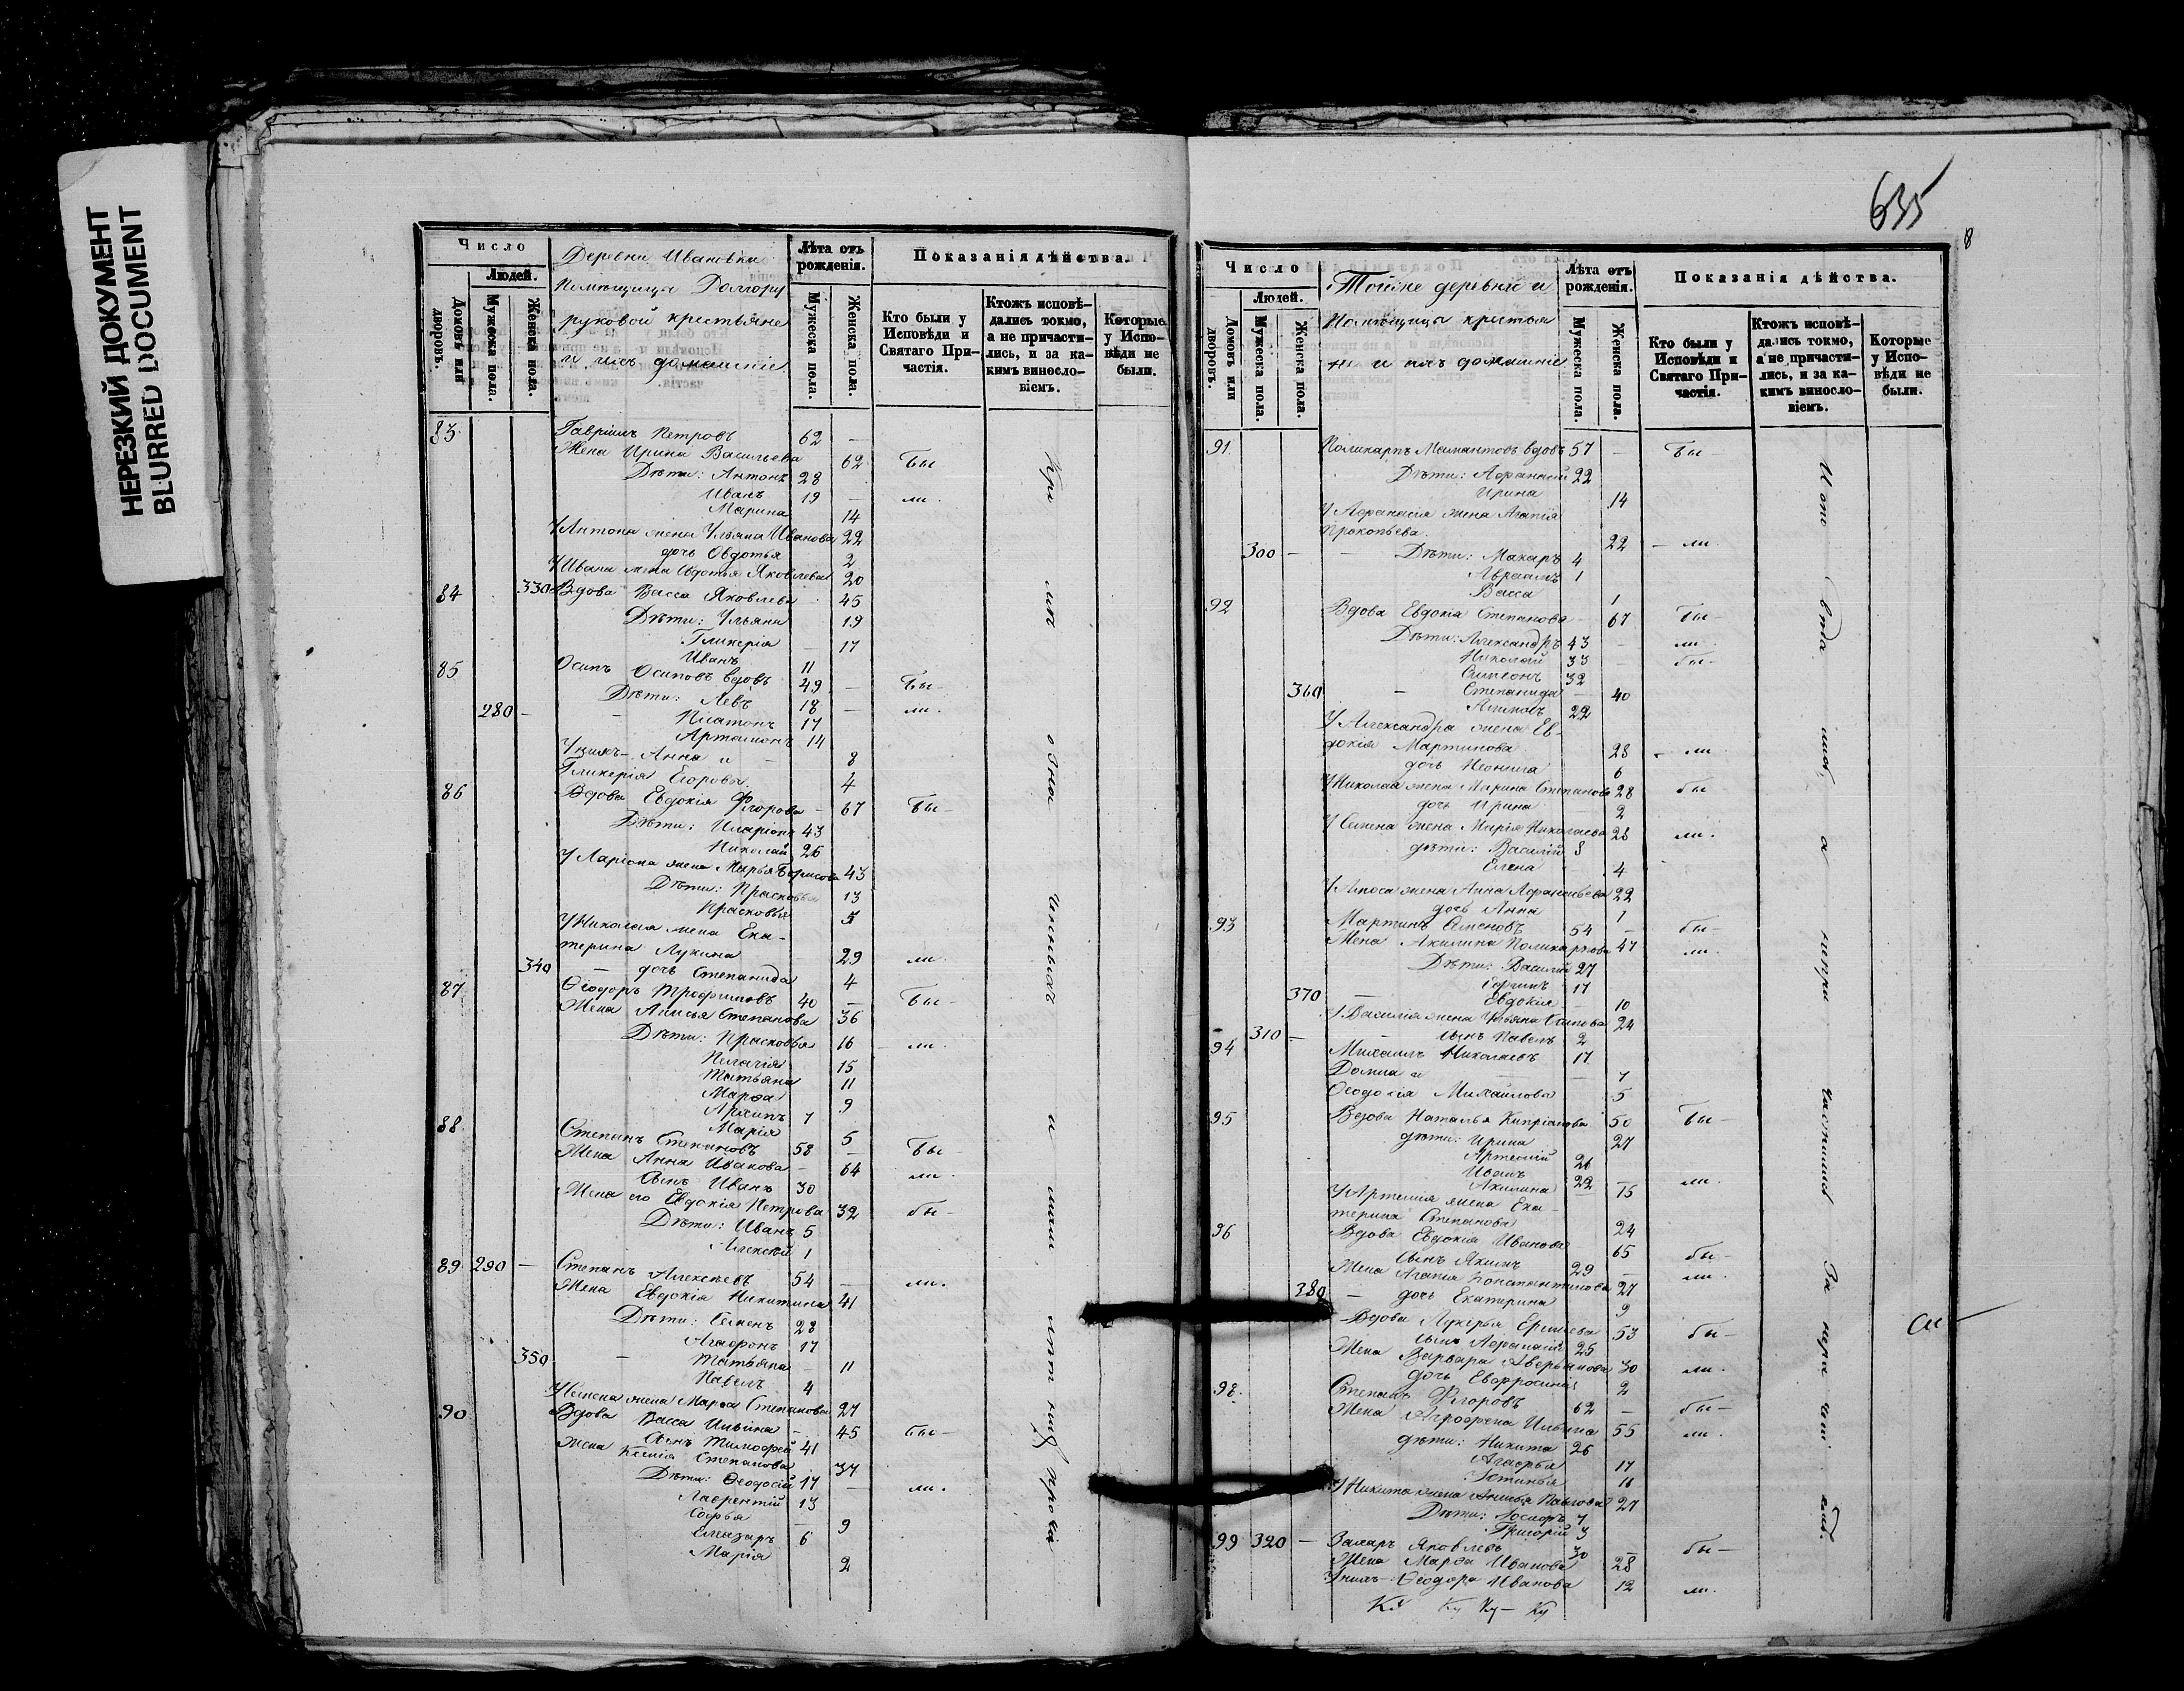 НЕРЕЗКИЙ ДОКУМЕНТ
BLURRED DOCUMENT
Число
Людей.
Домовъ или дворовъ.
Мужеска пола.
Женска пола.
Деревни Ивановки
Помѣщицы Долгору
руковой крестьяне
и ихъ домашніе
Лѣта отъ рожденія.
Мужеска пола.
Женска пола.
Показанія дѣйства.
Кто были у Исповѣди и Святаго Причастія.
Ктожъ исповѣдались токмо, а не причастились, и за какимъ винословіемъ.
Которые у Исповѣди не были.
83 Гавріилъ Петровъ 62 —
Жена Ирина Васильева 62 Бы
Дѣти: Антонъ 28
Иванъ 19 — ли.
Марина 14
У Антона жена Ульяна Иванова 22
дочь Овдотья 2
У Ивана жена Овдотья Яковлева 20
84 330 Вдова Васса Яковлева 45
Дѣти: Ульяна 19
Гликерія — 17
Иванъ 11
85 Осипъ Осиповъ вдовъ 49 — Бы —
Дѣти: Левъ 18 — ли.
280 — — Платонъ 17
Артамонъ 14
У нихъ — Анна и — 8
Гликерія Егоровы 4
86 Вдова Евдокія Фегорова — 67 Бы —
Дѣти: Иларіонъ 43
Николай 26
У Ларіона жена Марья Борисова 43
Дѣти: Прасковья 13
Прасковья 5
У Николая жена Ека-
терина Лукина 29 ли.
340 — дочь Степанида 4
87 Ѳеодоръ Трофимовъ 40 — Бы —
Жена Анисья Степанова 36
Дѣти: Прасковья 16 ли.
Пелагія 15
Татьяна 11
Марѳа 9
Архипъ 7
Марія 5
88 Степанъ Степановъ 58 — Бы —
Жена Анна Иванова — 64 ли.
Сынъ Иванъ 30
Жена его Евдокія Петрова 32 бы —
Дѣти: Иванъ 5
Алексѣй 1
89 290 — Степанъ Алексѣевъ 54 — ли.
Жена Евдокія Никитина 41
Дѣти: Семенъ 23
Агафонъ 17
350 — Татьяна — 11
Павелъ 4
У Семена жена Марѳа Степанова 27
90 Вдова Васса Ильина — 45 Бы —
Сынъ Тимофей 41
Жена Ксенія Степанова 37
Дѣти: Ѳеодосій 17 — ли.
Лаврентій 13
Софья — 9
Елеазаръ 6
Марія 2
635
8
Число
Людей.
Домовъ или дворовъ.
Мужеска пола.
Женска пола.
Тойже деревни и
Помѣщицы крестья
не и ихъ домашніе
Лѣта отъ рожденія.
Мужеска пола.
Женска пола.
Показанія дѣйства.
Кто были у Исповѣди и Святаго Причастія.
Ктожъ исповѣдались токмо, а не причастились, и за какимъ винословіемъ.
Которые у Исповѣди не были.
91 Поликарпъ вдовъ 57 — Бы —
Дѣти: Афанасій 22
Ирина 14
У Афанасія жена Агапія
Прокопьева 22 — ли.
300 — — Дѣти: Макаръ 4
Авраамъ 1
Васса 1
92 Вдова Евдокія Степанова — 67 Бы —
Дѣти: Александръ 43 — ли.
Николай 33 — бы —
Симеонъ 32
360 — Степанида — 40
22
У Александра жена Ев-
докія Мартинова 28 — ли
дочь Неонила 6
У Николая жена Марина Степанова 28 бы
дочь Ирина 2
У Семена жена Марія Николаева 28 ли.
дѣти: Василій 8
Елена 4
жена Анна Афанасьева 22
дочь Анна 1
93 Мартинъ Семеновъ 54 — бы —
Жена Акилина Поликарпова 47 ли.
Дѣти: Василій 27
17
370 — Евдокія — 10
У Василія жена Ульяна Осипова 24
310 — Сынъ Павелъ 2
94 Михаилъ Николаевъ 17
Домна и — — 7
Ѳеодосія Михайлова 5
95 Вдова Наталья Кипріанова 50 Бы —
дѣти: Ирина 27
Артемій 26
Иванъ 22
Акилина — 15 ли.
У Артемія жена Ека-
терина Степанова 24
96 Вдова Евдокія Иванова 65 бы —
Сынъ Якимъ 29 —
Жена Агапія Константинова 27 ли.
380 — дочь Екатерина 9
Вдова Лукерья 53 бы —
сынъ Афанасій 25
Жена Варвара Аверьянова 30 ли.
дочь Евфросинія 2
98. Степанъ Фегоровъ 62 — бы —
Жена Агрофена Ильина 55 ли.
дѣти: Никита 26
Агафья 17
Устинья 11
У Никиты жена 27
Дѣти: Іосифъ 7
Григорій 3
99 320 — Захаръ Яковлевъ 30 — бы —
Жена Марѳа Иванова 28
У нихъ — Ѳеодора Иванова 12 ли.